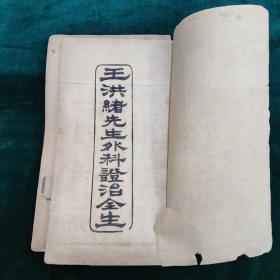 王洪緒先生外科證治全生